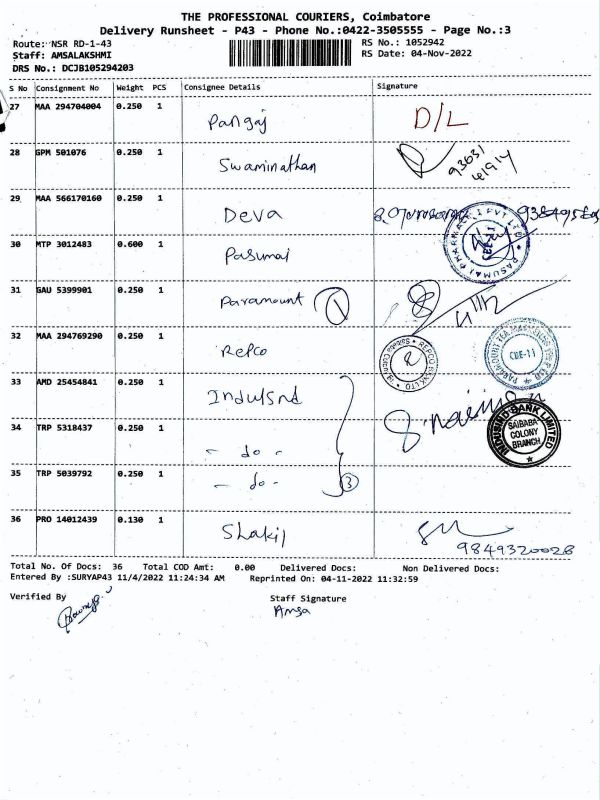 THE PROFESSIONAL COURIERS, Coimbatore
Delivery Runsheet - P43 - Phone No.:0422-3505555 - Page No.:3
Route: NSR RD-1-43 RS No.: 1052942
Staff: AMSALAKSHMI RS Date: 04-Nov-2022
DRS No.: DCJB105294203
S No Consignment No Weight PCS Consignee Details Signature
27 MAA 294704004 0.250 1 Pangaj D/L
28 GPM 501076 0.250 1 Swaminathan 93631
41914
29 MAA 566170160 0.250 1 Deva
30 MTP 3012483 0.600 1 Pasumai
31 GAU 5399901 0.250 1 Paramount 1
32 MAA 294769290 0.250 1 Repco REPCO BANK LTD CBE-11
33 AMD 25454841 0.250 1 IndusInd
34 TRP 5318437 0.250 1 - do - INDUSIND BANK LIMITED
SAIBABA
COLONY
BRANCH
35 TRP 5039792 0.250 1 - do - 3
36 PRO 14012439 0.130 1 Shakil
9849320028
Total No. Of Docs: 36 Total COD Amt: 0.00 Delivered Docs: Non Delivered Docs:
Entered By :SURYAP43 11/4/2022 11:24:34 AM Reprinted On: 04-11-2022 11:32:59
Verified By Staff Signature
Amsa